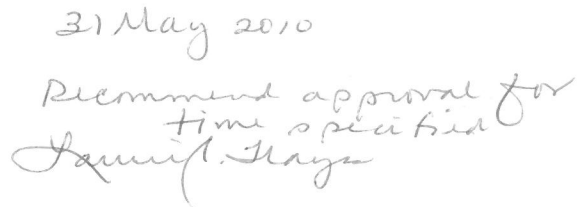 31 May 2010
Recommend approval for
time specified